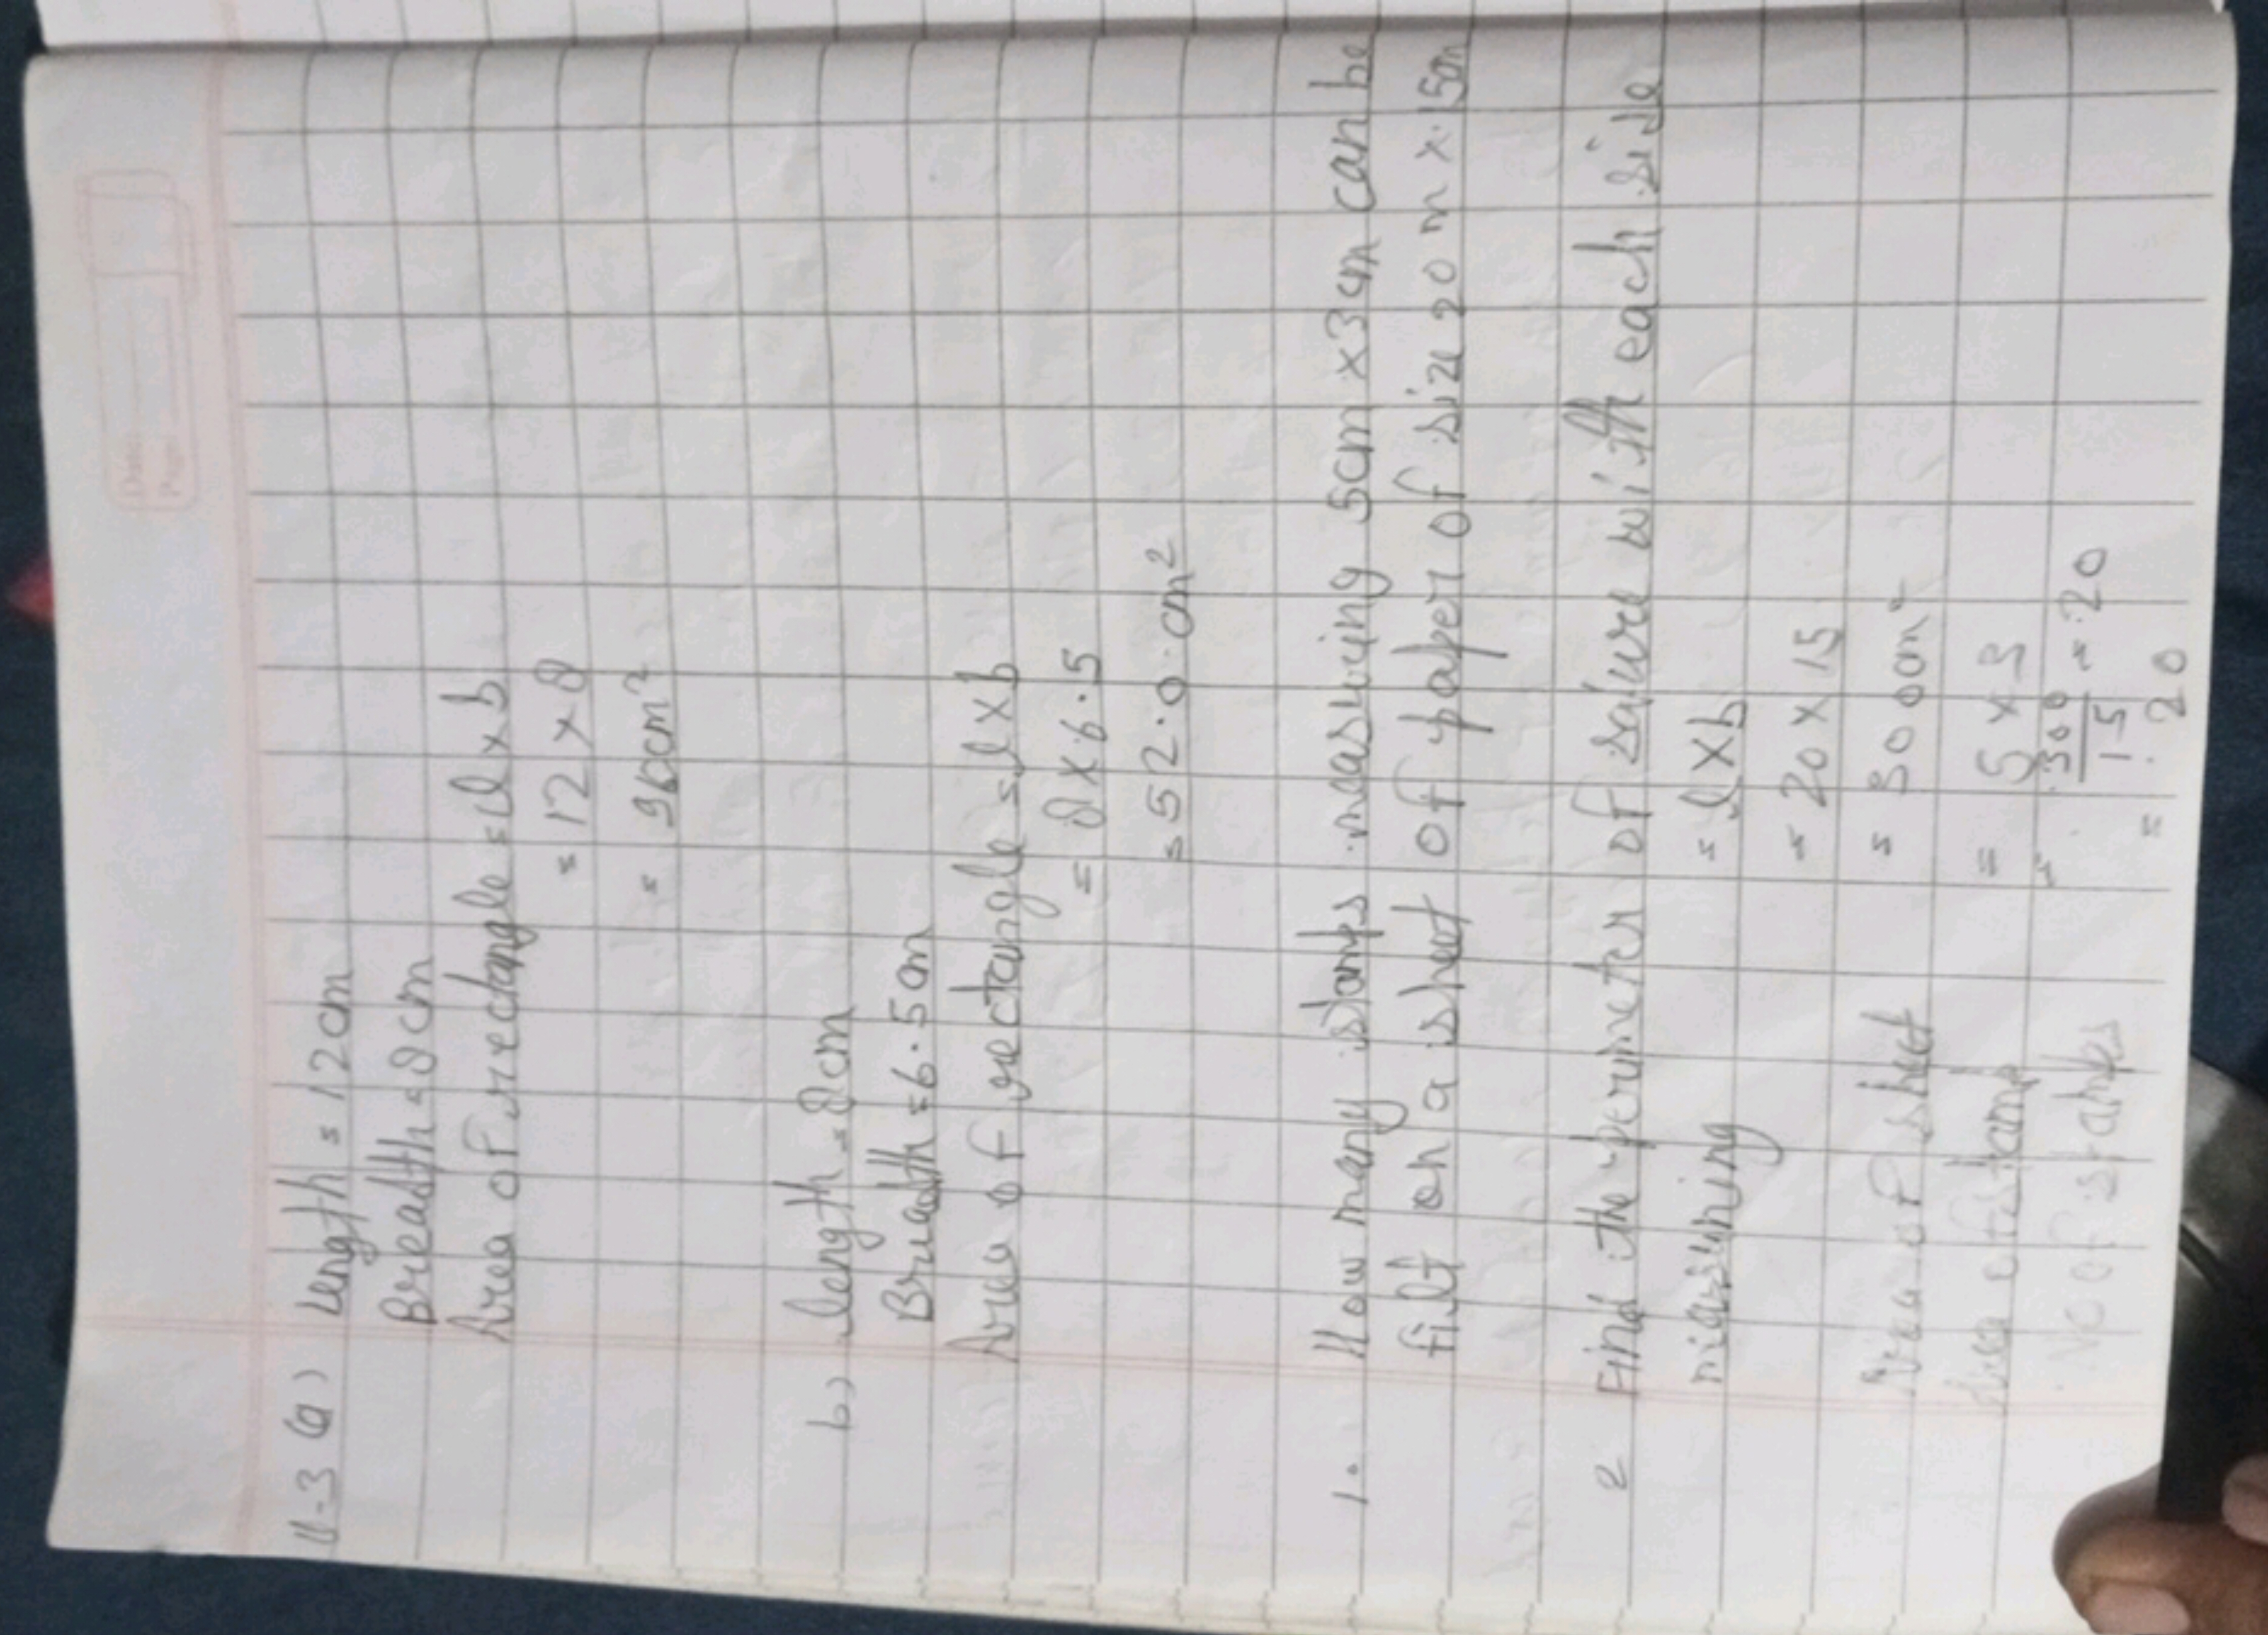 Date:
Page:
11-3 (a) Length = 12cm
Breadth = 8cm
Area of rectangle = l x b
= 12 x 8
= 96cm²
b) length = 8cm
Breadth = 6.5cm
Area of rectangle = l x b
= 8 x 6.5
= 52.0 cm²
1. How many stamps measuring 5cm x 3cm can be
filt on a sheet of paper of size 20 m x 15cm
2 Find the perimeter of sature with each side
measuring = l x b
= 20 x 15
Area of sheet = 300cm²
Area of stamp = 5 x 3
No of stamps = 300/15 = 20
= 20